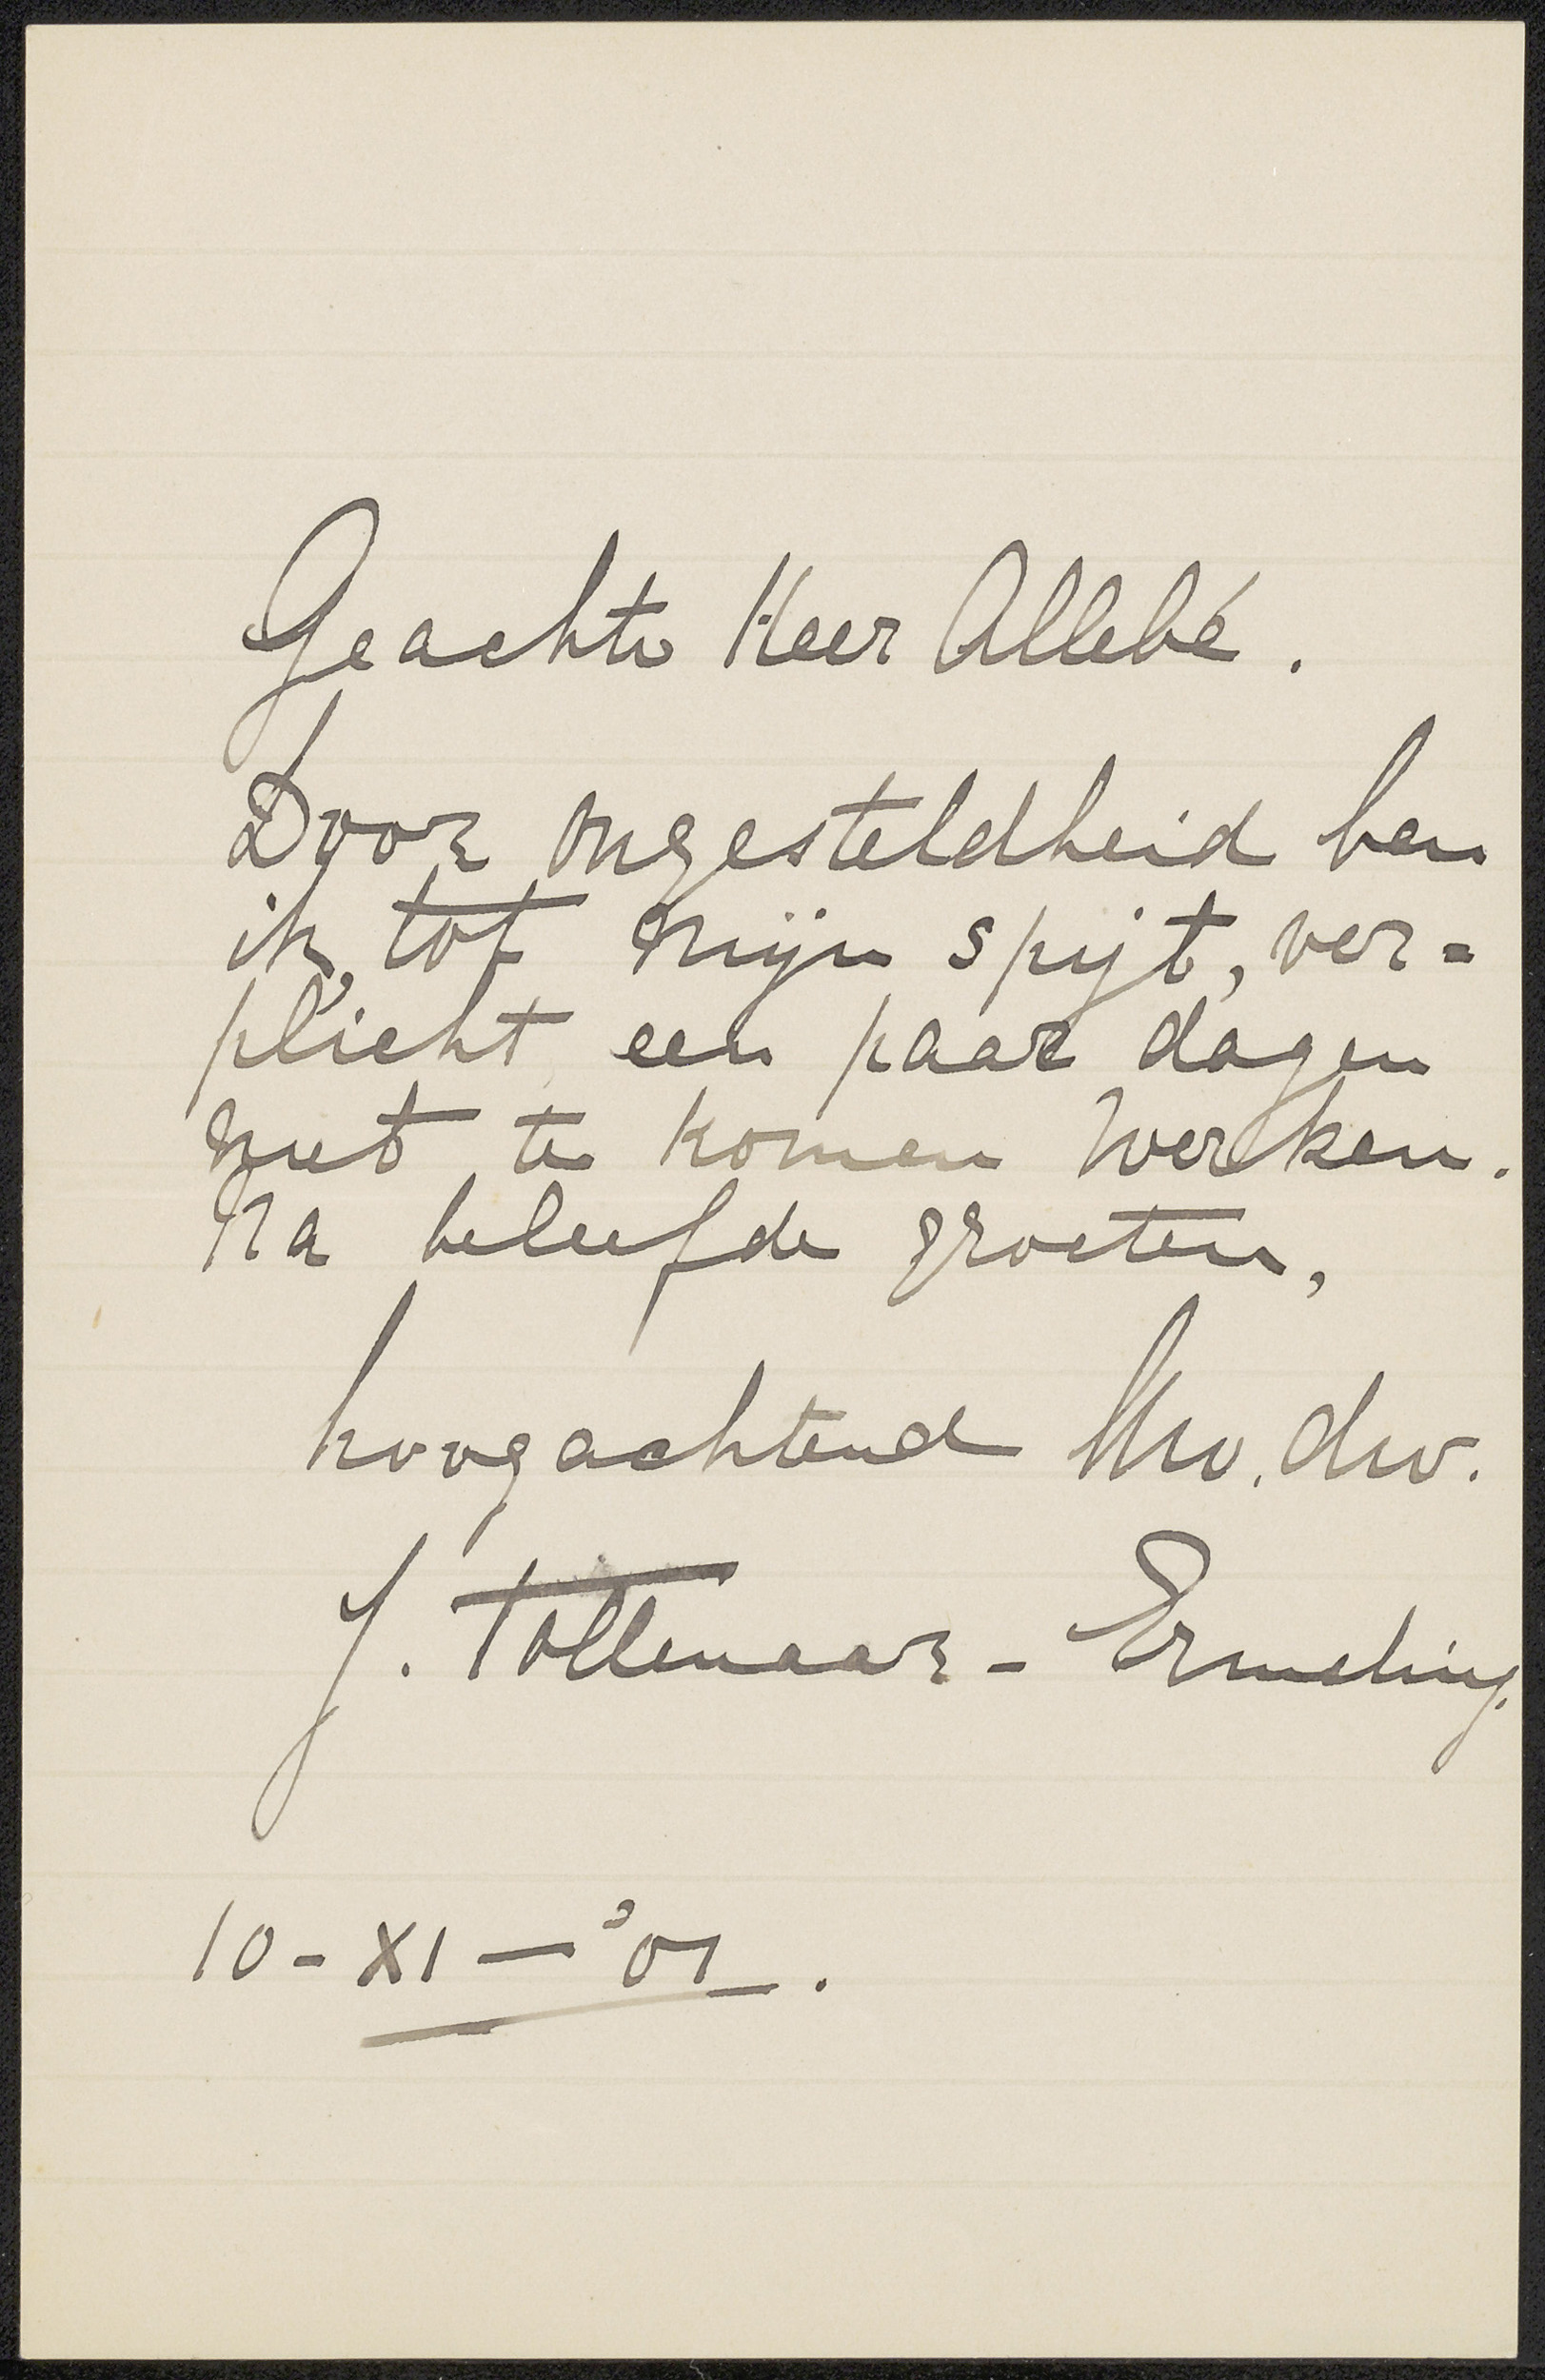 Geachte Heer Allebé.
Door ongesteldheid ben
ik, tot mijn spijt, ver=
plicht een paar dagen
niet te komen werken.
Na beleefde groeten,
hoogachtend Uw. dw.
J. Tollenaar - Ermeling.
10 - XI — '01.